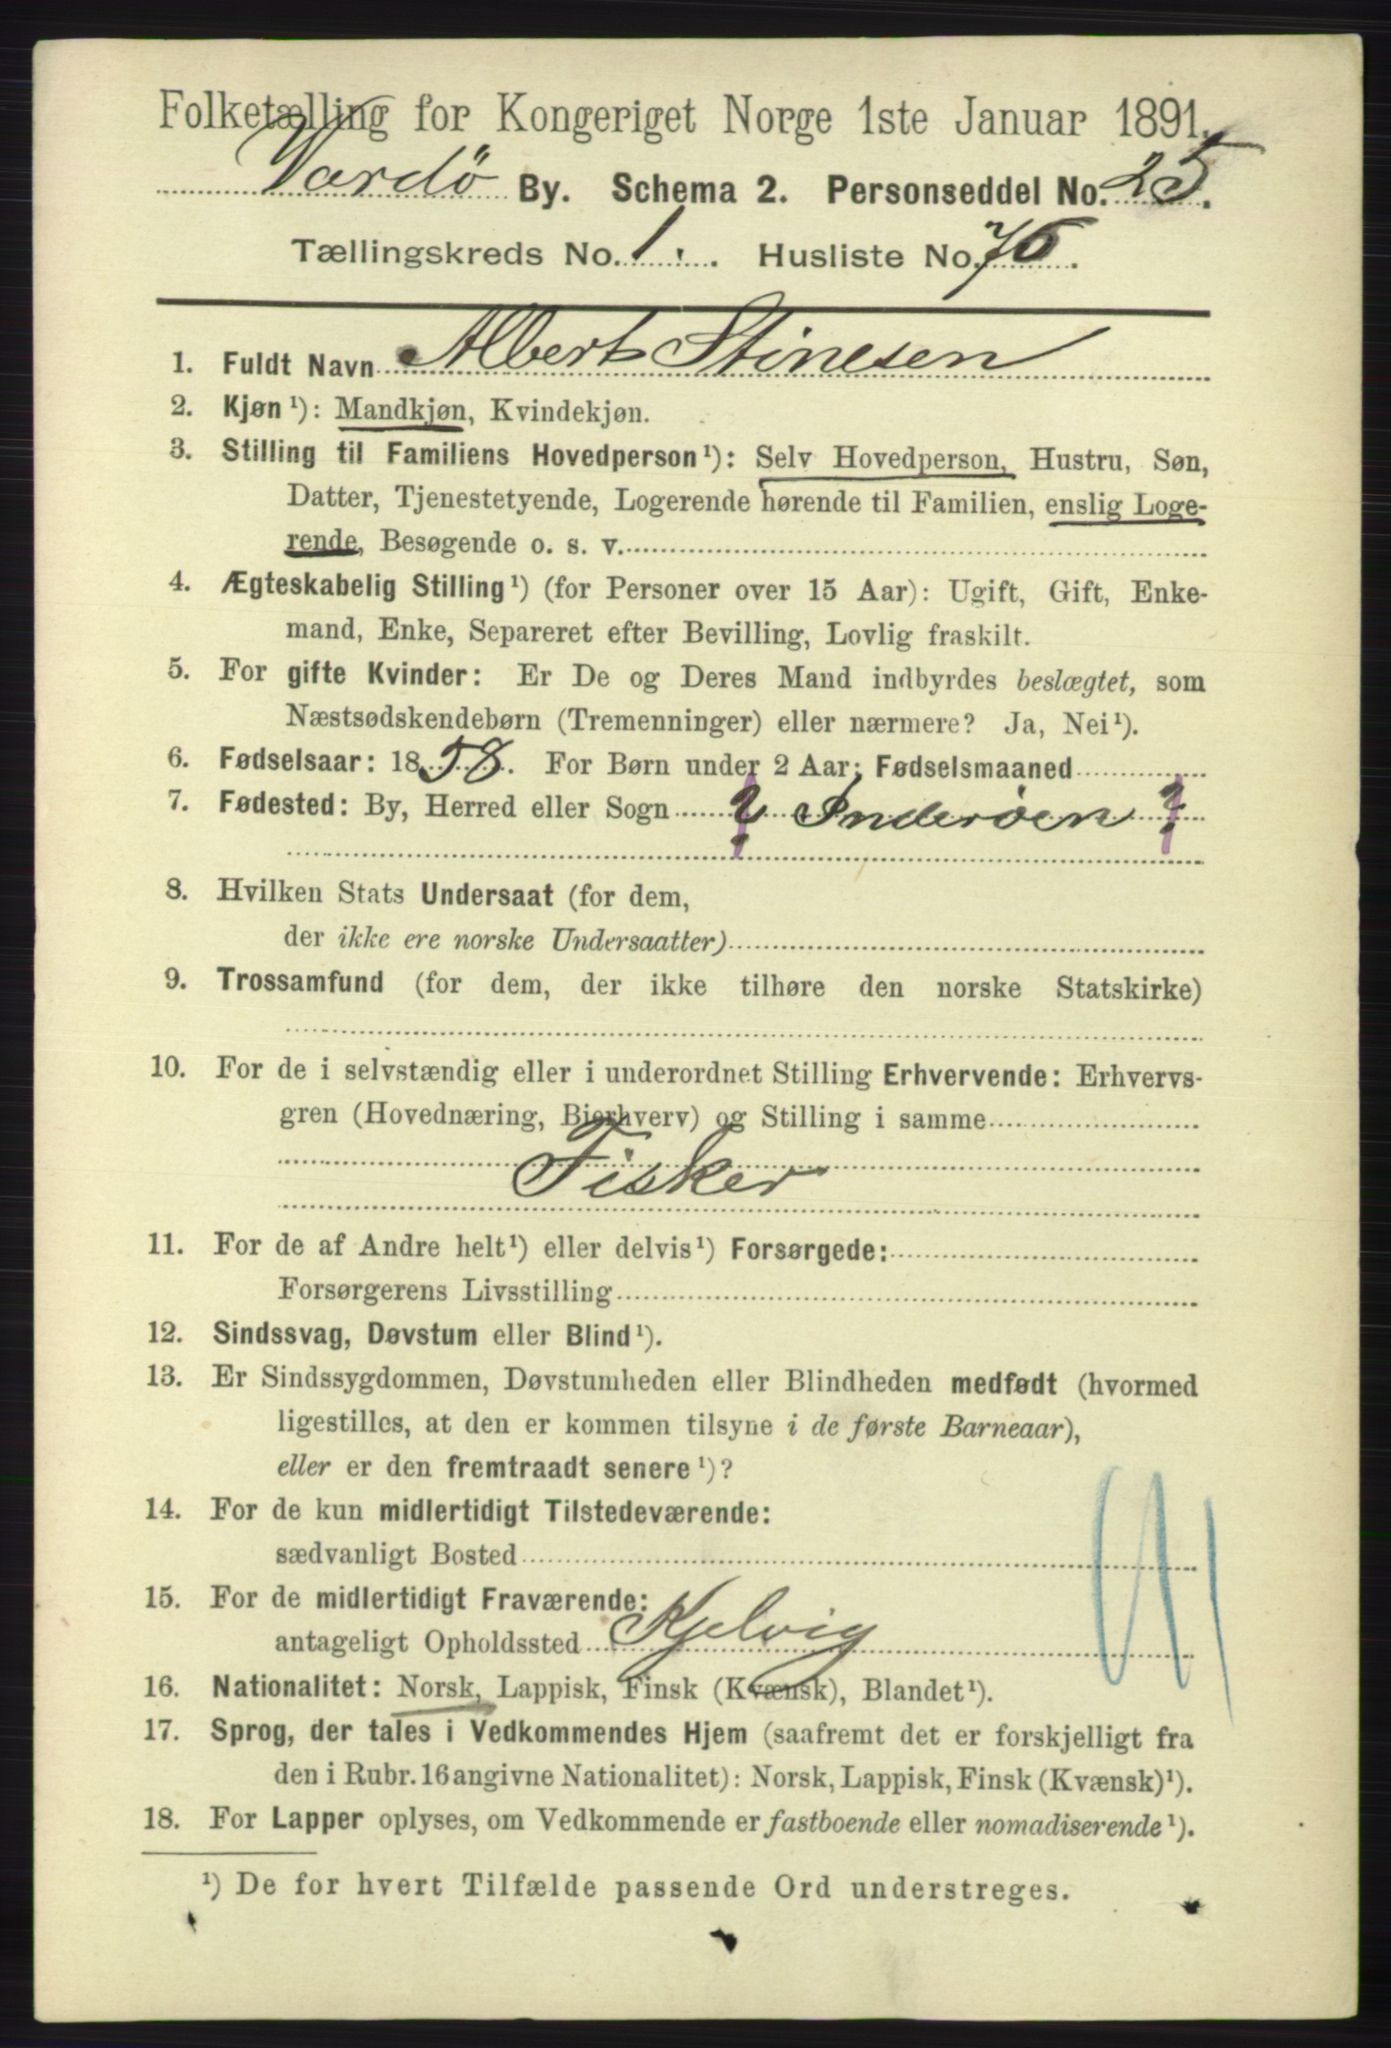 Folketælling for Kongeriget Norge 1ste Januar 1891.
Vardö By. Schema 2. Personseddel No. 25.
Tællingskreds No. 1. Husliste No. 76.
1. Fuldt Navn Albert Stinesen
2. Kjøn¹): Mandkjøn, Kvindekjøn.
3. Stilling til Familiens Hovedperson¹): Selv Hovedperson, Hustru, Søn,
Datter, Tjenestetyende, Logerende hørende til Familien, enslig Loge-
rende, Besøgende o. s. v.
4. Ægteskabelig Stilling¹) (for Personer over 15 Aar): Ugift, Gift, Enke-
mand, Enke, Separeret efter Bevilling, Lovlig fraskilt.
5. For gifte Kvinder: Er De og Deres Mand indbyrdes beslægtet, som
Næstsødskendebørn (Tremenninger) eller nærmere? Ja, Nei¹).
6. Fødselsaar: 1858. For Børn under 2 Aar: Fødselsmaaned
7. Fødested: By, Herred eller Sogn ? Inderöen ?
8. Hvilken Stats Undersaat (for dem,
der ikke ere norske Undersaatter)
9. Trossamfund (for dem, der ikke tilhøre den norske Statskirke)
10. For de i selvstændig eller i underordnet Stilling Erhvervende: Erhvervs-
gren (Hovednæring, Bierhverv) og Stilling i samme
Fisker
11. For de af Andre helt¹) eller delvis¹) Forsørgede:
Forsørgerens Livsstilling
12. Sindssvag, Døvstum eller Blind¹).
13. Er Sindssygdommen, Døvstumheden eller Blindheden medfødt (hvormed
ligestilles, at den er kommen tilsyne i de første Barneaar),
eller er den fremtraadt senere¹)?
14. For de kun midlertidigt Tilstedeværende:
sædvanligt Bosted
15. For de midlertidigt Fraværende:
antageligt Opholdssted Kjelvig
16. Nationalitet: Norsk, Lappisk, Finsk (Kvænsk), Blandet¹).
17. Sprog, der tales i Vedkommendes Hjem (saafremt det er forskjelligt fra
den i Rubr. 16 angivne Nationalitet): Norsk, Lappisk, Finsk (Kvænsk)¹).
18. For Lapper oplyses, om Vedkommende er fastboende eller nomadiserende¹).
¹) De for hvert Tilfælde passende Ord understreges.